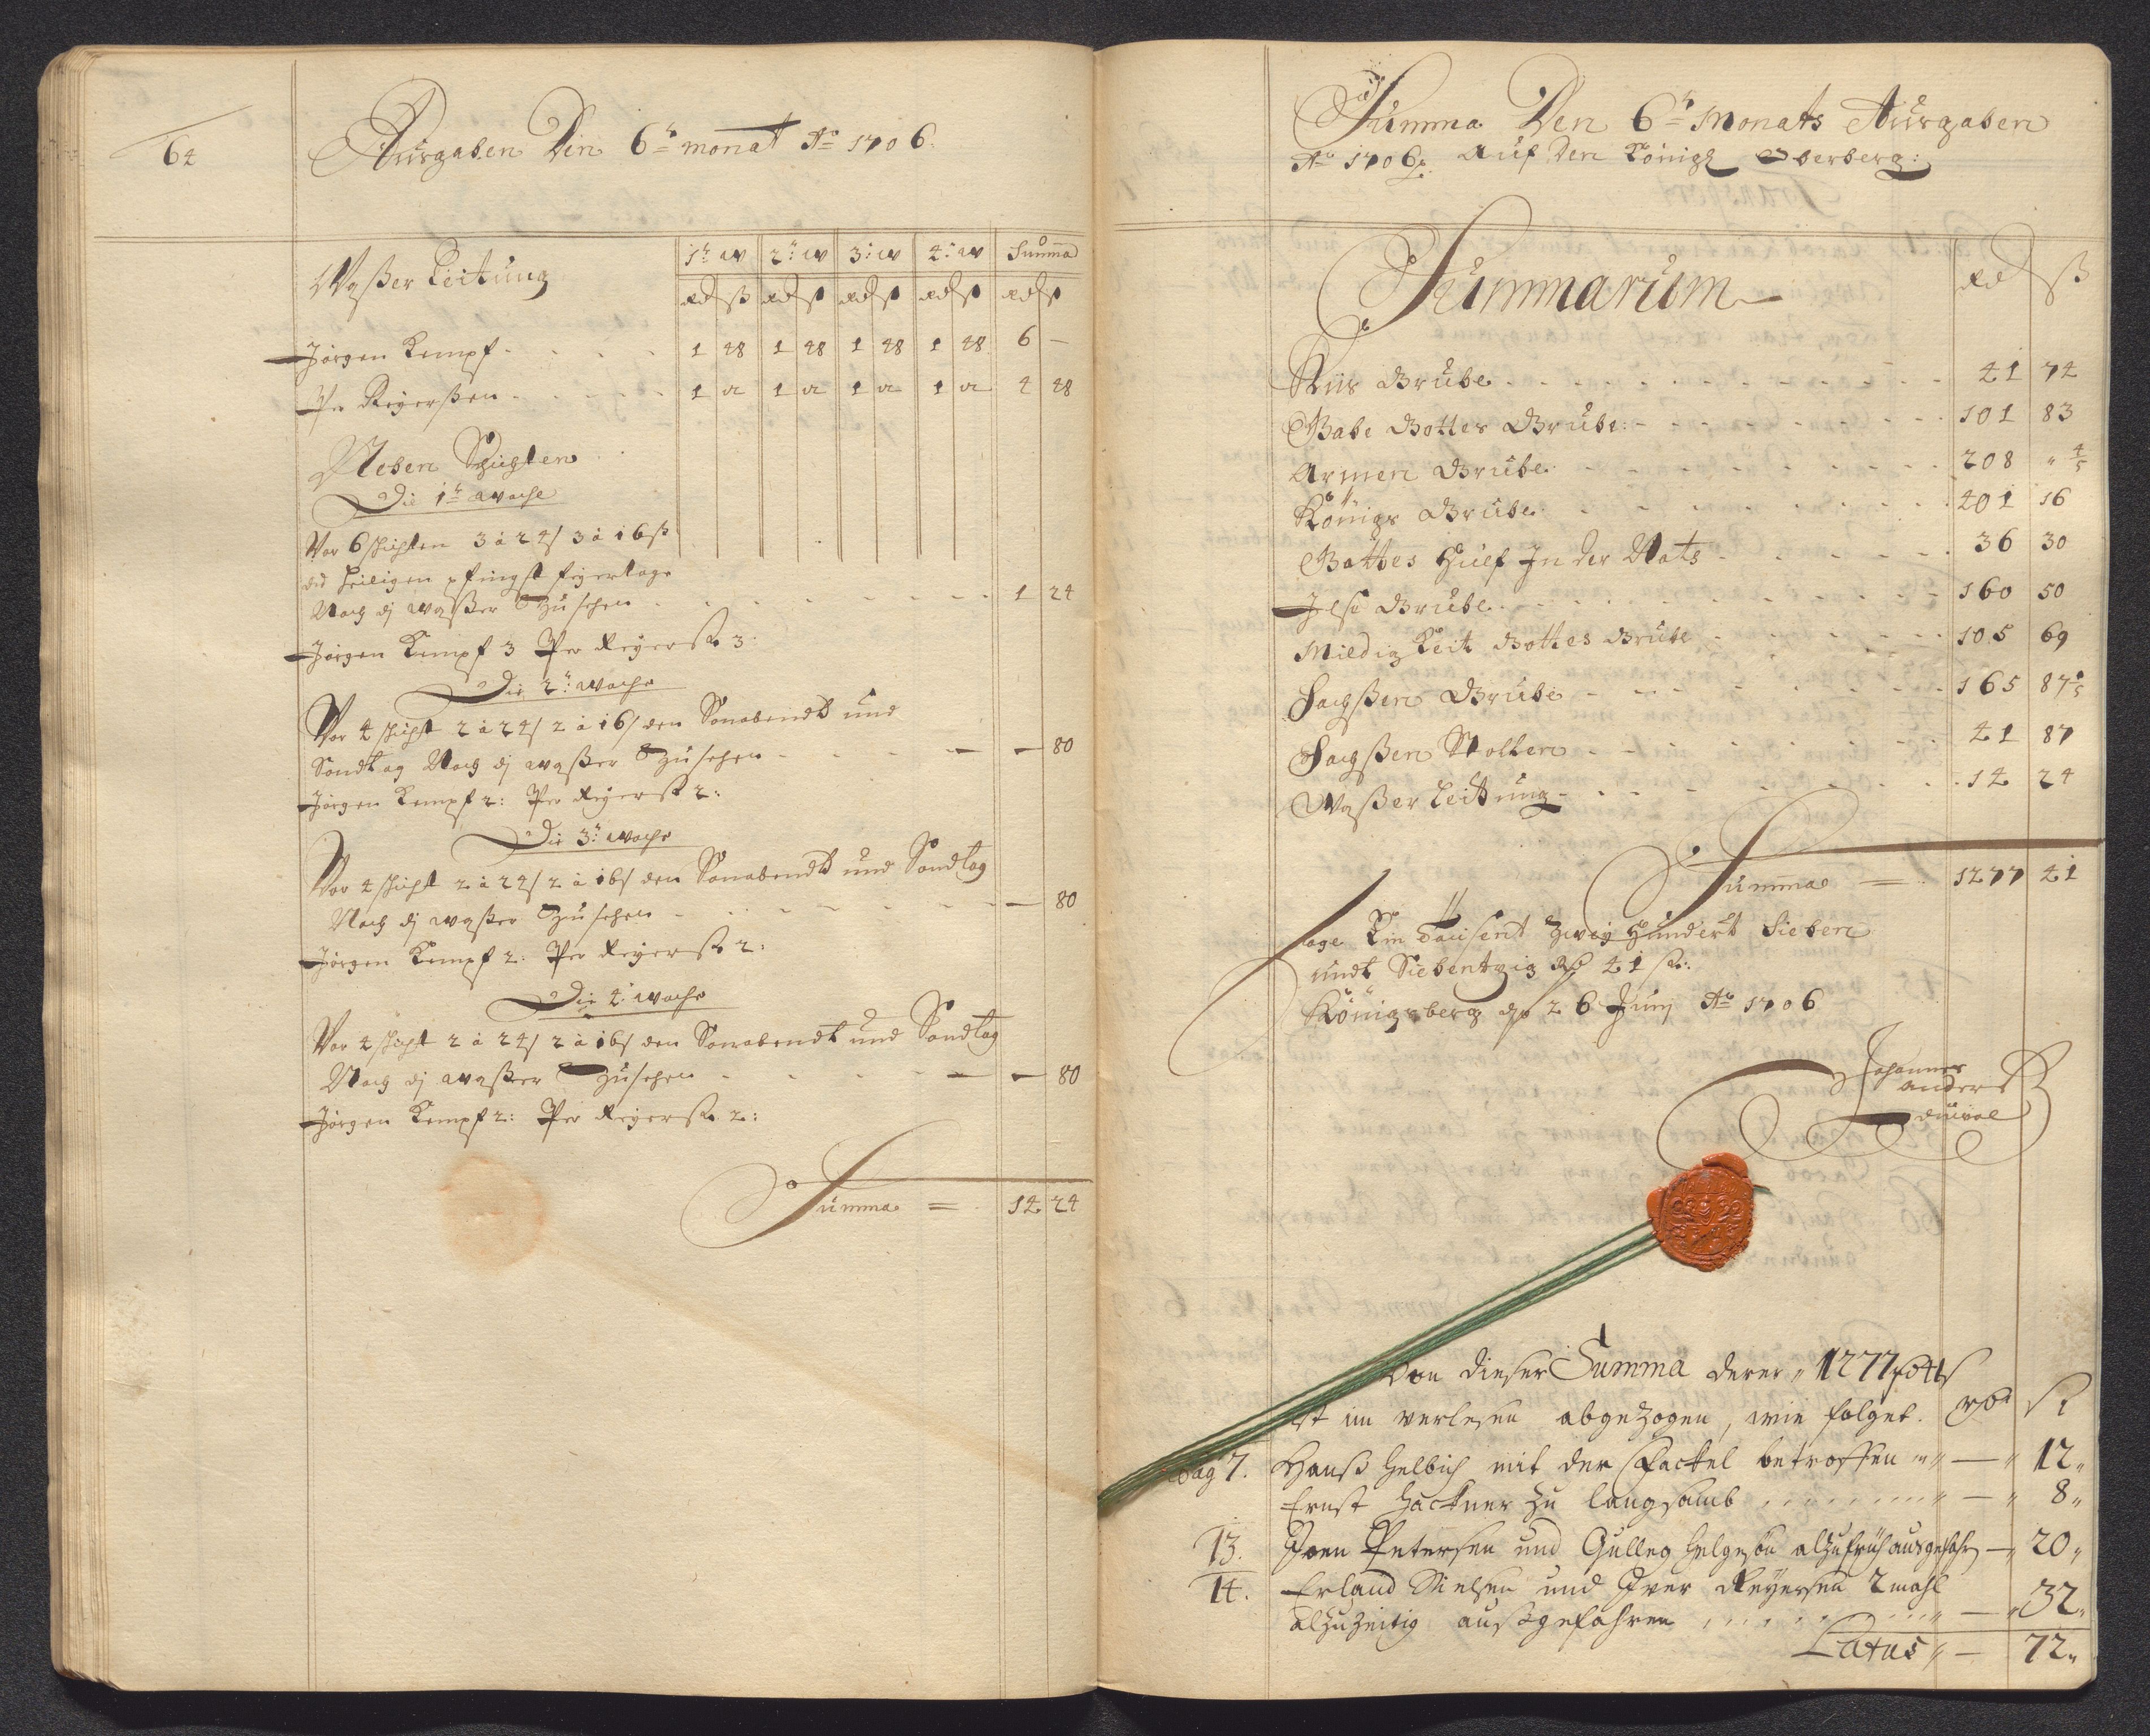 64
Ausgaben Den 6tr monat Ao 1706.
Waßer Leitung
1tr W 2tr W 3tr W 4tr W Summa
Rd ß Rd ß Rd ß Rd ß Rd ß
Jörgen Kempf 1 48 1 48 1 48 1 48 6 —
Per Reyerßen 1 12 1 12 1 12 1 12 4 48
Neben Schichten
Die 1tr Woche
Vor 6 schichten 3 à 24 ß 3 à 16 ß
die heiligen pfingst feyertage
Nach dz waßer Zu sehen 1 24
Jörgen Kempf 3 Per Reyerß 3:
Die 2tr Woche
Vor 4 schicht 2 à 24 ß 2 à 16 ß den Sonabendt und
Sondtag Nach dz waßer Zu sehen — 80
Jörgen Kempf 2: Per Reyerß 2:
Die 3tr Woche
Vor 4 schicht 2 à 24 ß 2 à 16 ß den Sonabendt und Sondtag
Nach dz waßer Zu sehen — 80
Jörgen Kempf 2: Per Reyerß 2:
Die 4tr Woche
Vor 4 schicht 2 à 24 ß 2 à 16 ß den Sonabendt und Sondtag
Nach dz waßer Zu sehen — 80
Jörgen Kempf 2: Per Reyerß 2:
Summa = 14 24
Summa Den 6tr Monats Ausgaben
Ao 1706. Auf den Königl Oberberg:
Summarum Rd ß
Grube 41 74
Gabe Gottes Grube 101 83
Armen Grube 208 " 4/5
Königs Grube 401 16
Gottes Hülf In der Noth 36 30
Jelse Grube 160 50
Mildigkeit Gottes Grube 105 69
Sachßen Grube 165 87 1/5
Sachßen Stollen 41 87
Waßer Leitung 14 24
Summa = 1277 41
Sage Ein Tausent Zwey Hundert Sieben
undt Siebentzig Rd 41 ß:
Königsberg d 26 Juny Ao 1706
Johannes
Ander
Duval
Von dieser Summa derer " 1277 rd 41 ß
ist im verlesen abgezogen, wie folget. rd ß
Pag 7. Hanß Helbich mit der Fackel betroffen — " 12 "
Ernst Hackner zu langsamb — " 8 "
13. Joen Petersen und Gulleg Helgesen alzufrüh ausgefahr — " 20 "
14. Erland Nielsen und Iver Reyersen 2 mahl
alzuzeitig außgefahren — " 32 "
Latus " — 72 "